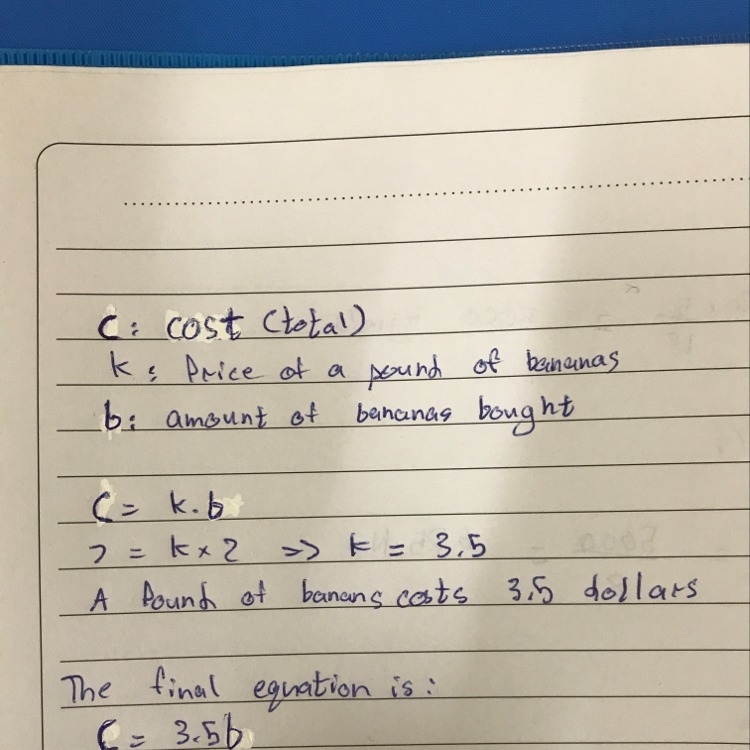 C: cost (total)
k: Price of a pound of bananas
b: amount of bananas bought
C = k.b
7 = k × 2 => k = 3.5
A Pound of banans costs 3.5 dollars
The final equation is:
C = 3.5b